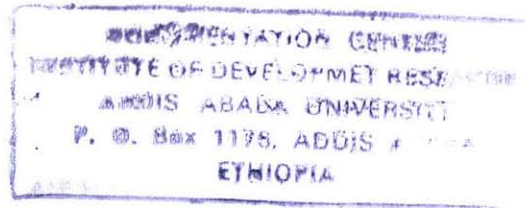 DOCUMENTATION CENTER
INSTITUTE OF DEVELOPMET RESEARCH
ADDIS ABABA UNIVERSITY
P. O. Box 1176, ADDIS
ETHIOPIA